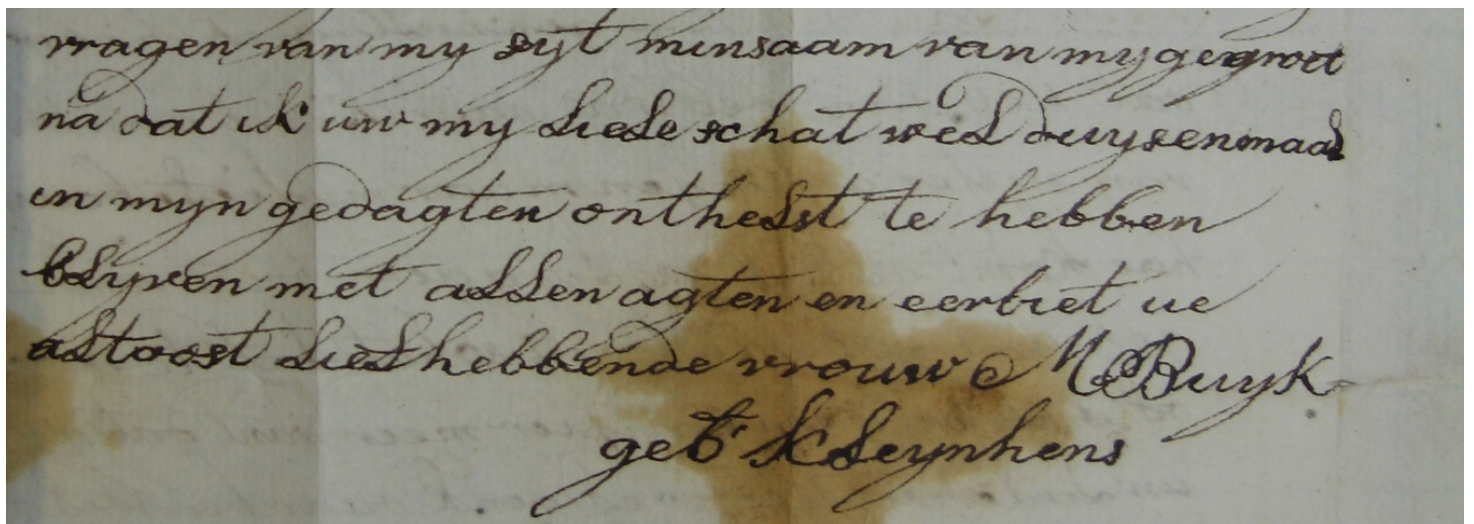 vragen van my syt minsaam van my gegroet
na dat ik uw my liefe schat wel duysenmaal
in myn gedagten onthelst te hebben
blyven met allen agten en eerbiet ue
altoost liefhebbende vrouw M Buyk
geb kleynhens